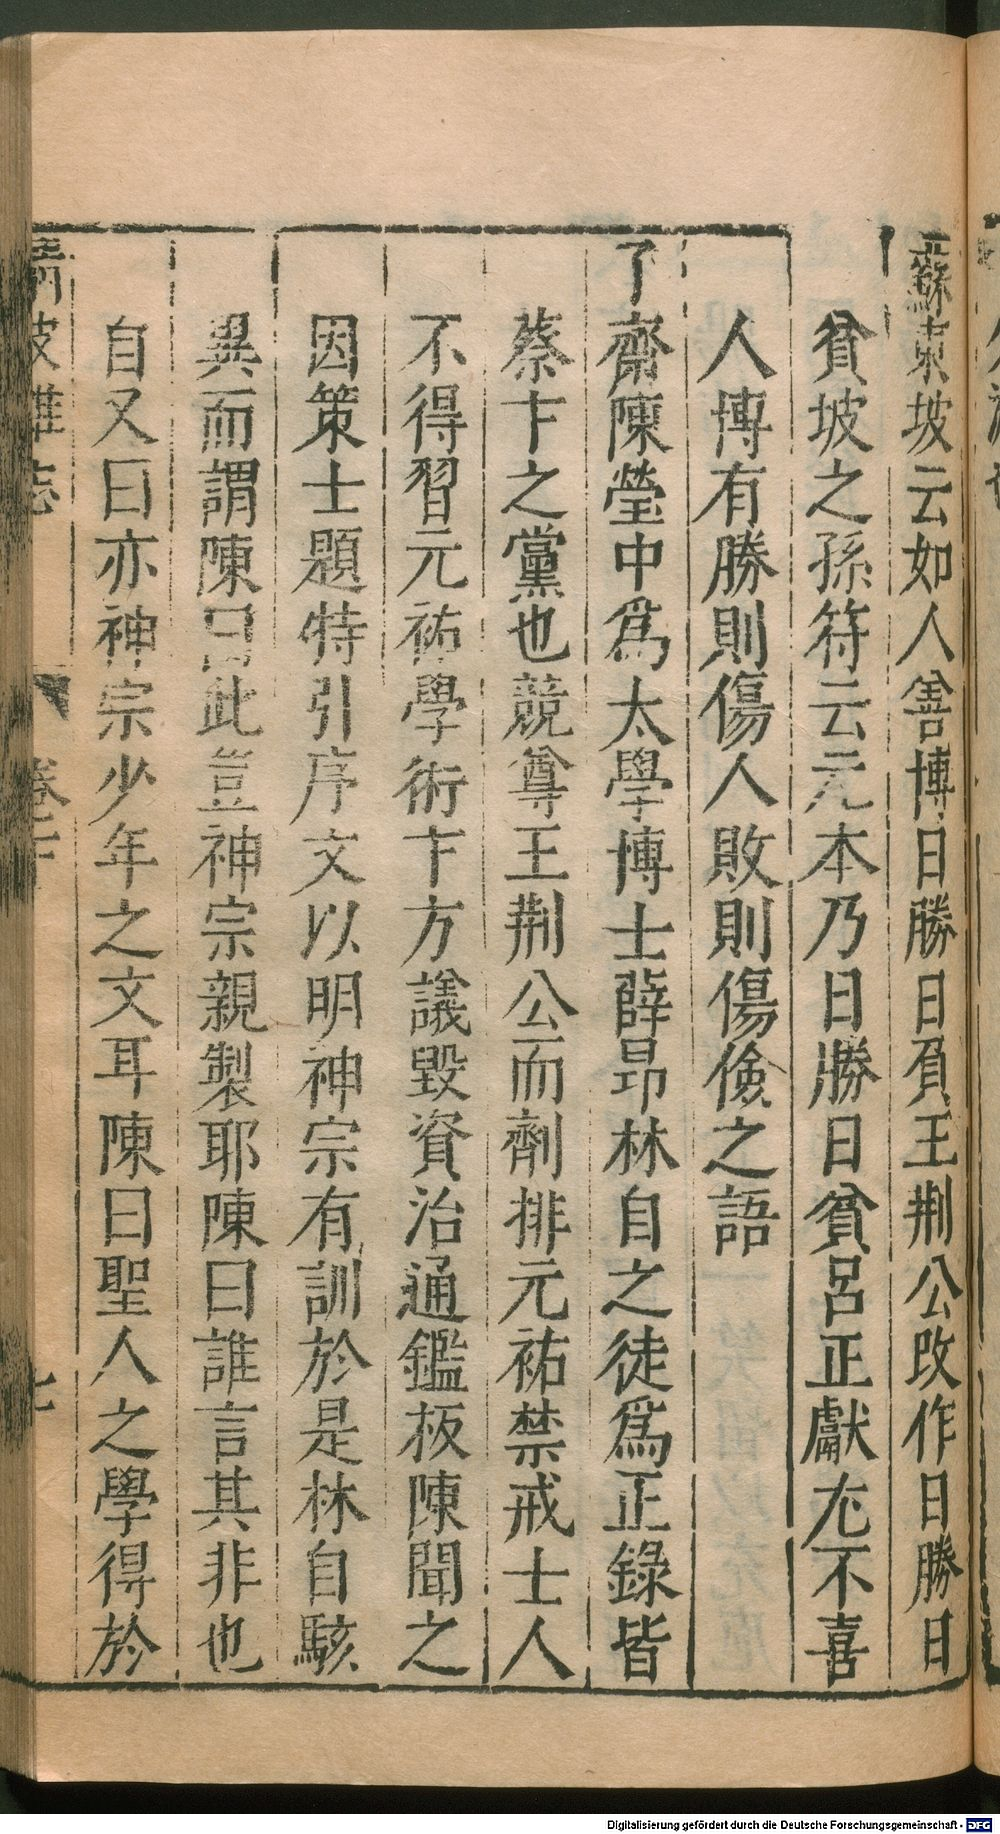 蘇東坡云如人善博日勝日負王荆公改作日勝日
貧坡之孫符云元本乃日勝日貧呂正獻尤不喜
人博有勝則傷人敗則傷儉之語
了齋陳瑩中爲太學博士薛昂林自之徒爲正錄皆
蔡卞之黨也競尊王荆公而劑排元祐禁戒士人
不得習元祐學術卞方議毀資治通鑑板陳聞之
因策士題特引序文以明神宗有訓於是林自駭
異而謂陳曰此豈神宗親製耶陳曰誰言其非也
自又曰亦神宗少年之文耳陳曰聖人之學得於
清波雜志 卷 七
Digitalisierung gefördert durch die Deutsche Forschungsgemeinschaft - DFG